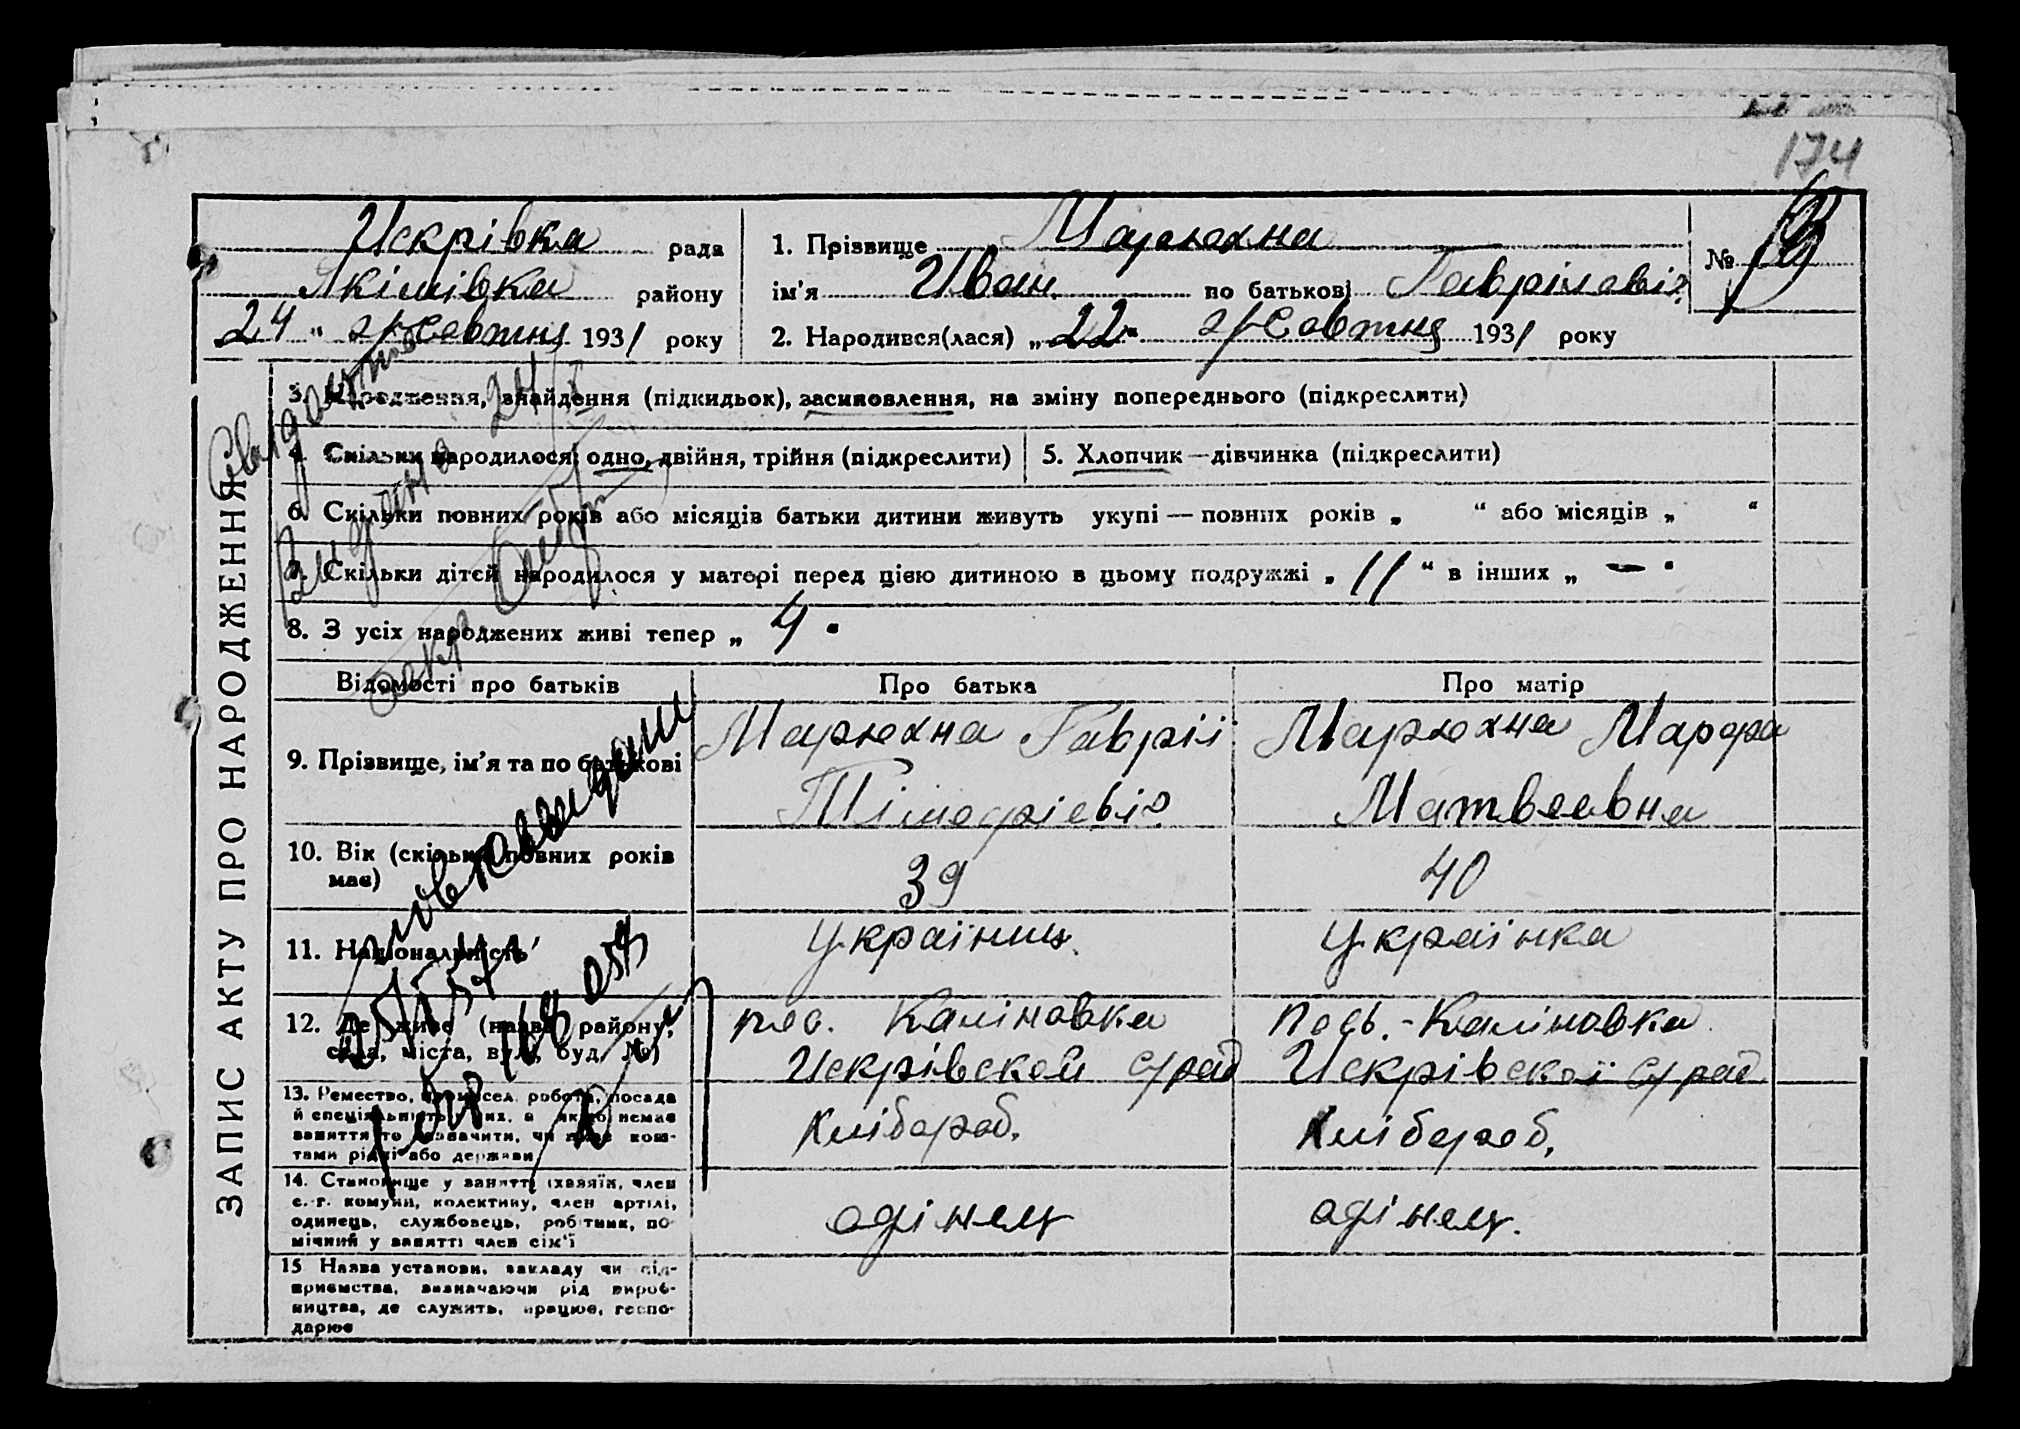 174
Искрівка рада
Якімівка району
24 " жовтня 1931 року
1. Прізвище Марюхна
ім'я Иван по батькові Гавріловіч
2. Народився(лася) „22" жовтня 1931 року
№
ЗАПИС АКТУ ПРО НАРОДЖЕННЯ
3. Народження, знайдення (підкидьок), засиновлення, на зміну попереднього (підкреслити)
4. Скільки народилося: одно, двійня, трійня (підкреслити)
5. Хлопчик—дівчинка (підкреслити)
6. Скільки повних років або місяців батьки дитини живуть укупі—повних років „ " або місяців „ "
7. Скільки дітей народилося у матері перед цією дитиною в цьому подружжі „11" в інших „ — "
8. З усіх народжених живі тепер „ 4 "
Відомості про батьків
Про батька
Про матір
9. Прізвище, ім'я та по батькові
Марюхна Гавріі
Тімофріевіч
Марюхна Марфа
Матвеевна
10. Вік (скільки повних років має)
39
40
11. Національність
Українец
Українка
12. Де живе (назва району, села, міста, вул., буд. №)
пос. Каліновка
Искрівской с/рад
Посъ.-Каліновка
Искрівскої с/рад
13. Ремество, промисел, робота, посада
й спеціяльність у них, а якщо немає
заняття то зазначити, чи живе кош-
тами рідні або держави
хлібороб.
хлібороб.
14. Становище у занятті (хазяїн, член
с.-г. комуни, колективу, член артілі,
одинець, службовець, робітник, по-
мічний у занятті член сім'ї
одінец
одінец.
15 Назва установи, закладу чи під-
приємства, зазначаючи рід вироб-
ництва, де служить, працює, госпо-
дарює
Свидоцтво
видано 24/X